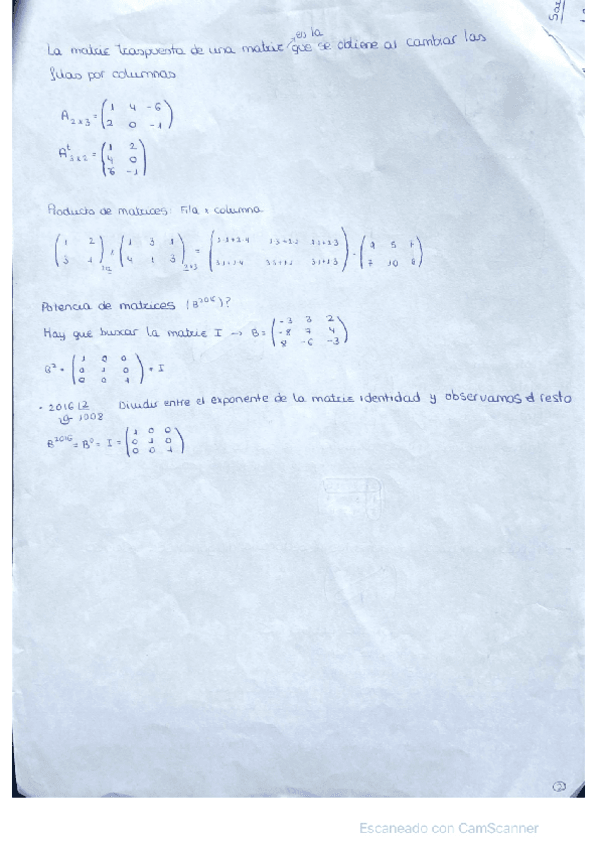 es la
La matriz traspuesta de una matriz que se obtiene al cambiar las
filas por columnas
A2x3 = ( 1 4 -6
2 0 -1 )
A^t 3x2 = ( 1 2
4 0
-6 -1 )
Producto de matrices: Fila x columna
( 1 2
3 1 )2x2 · ( 1 3 1
4 1 3 )2x3 = ( 1·1+2·4 1·3+2·1 1·1+2·3
3·1+1·4 3·3+1·1 3·1+1·3 ) = ( 9 5 7
7 10 6 )
Potencia de matrices (B^2016)?
Hay que buscar la matriz I → B = ( -3 3 2
-8 7 4
8 -6 -3 )
B² = ( 1 0 0
0 1 0
0 0 1 ) = I
· 2016 | 2 Dividir entre el exponente de la matriz identidad y observamos el resto
0 1008
B^2016 = B^0 = I = ( 1 0 0
0 1 0
0 0 1 )
2
Escaneado con CamScanner